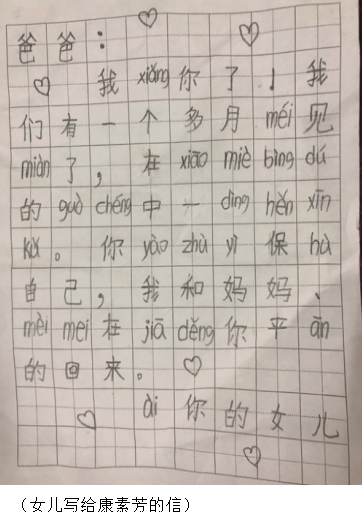 爸爸：
我xiǎng你了！我
们有一个多月méi见
miàn了，在xiāo miè bìng dú
的guò chéng中一dìng hěn xīn
kǔ。你yào zhù yì保hù
自己，我和妈妈、
mèi mei在jiā děng你平ān
的回来。
ài你的女儿
（女儿写给康素芳的信）